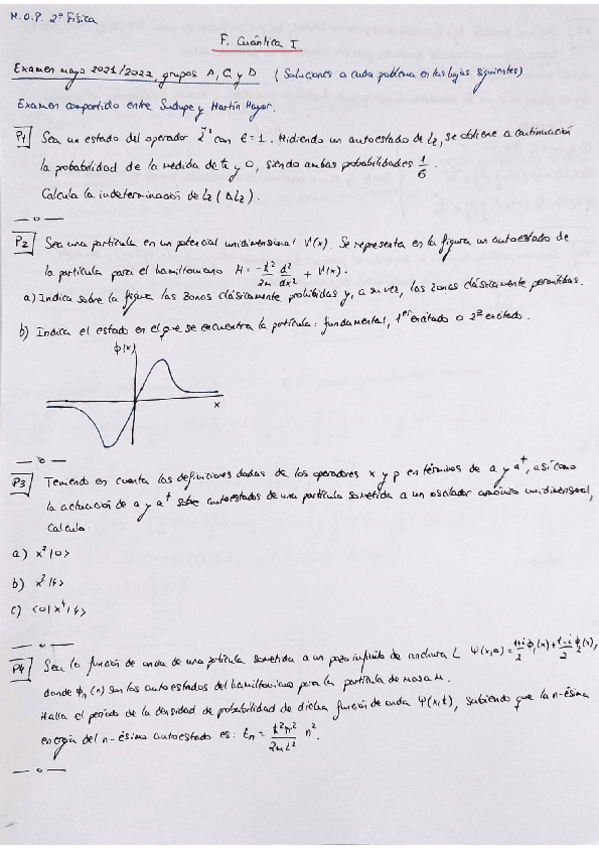 M.O.P. 2º Física
F. Cuántica I
Examen mayo 2021/2022, grupos A, C y D (Soluciones a cada problema en las hojas siguientes)
Examen compartido entre Sudupe y Martín Mayor.
P1 Sea un estado del operador L² con ℓ=1. Midiendo un autoestado de Lz, se obtiene a continuación
la probabilidad de la medida de ħ y 0, siendo ambas probabilidades 1/6.
Calcula la indeterminación de Lz (ΔLz).
— o —
P2 Sea una partícula en un potencial unidimensional V(x). Se representa en la figura un autoestado de
la partícula para el hamiltoniano H = -ħ²/2m d²/dx² + V(x).
a) Indica sobre la figura las zonas clásicamente prohibidas y, a su vez, las zonas clásicamente permitidas.
b) Indica el estado en el que se encuentra la partícula: fundamental, 1er excitado o 2º excitado.
ϕ(x)
x
— o —
P3 Teniendo en cuenta las definiciones dadas de los operadores x y p en términos de a y a†, así como
la actuación de a y a† sobre autoestados de una partícula sometida a un oscilador armónico unidimensional,
calcula
a) x²|0>
b) x²|4>
c) <0|x⁴|4>
— o —
P4 Sea la función de onda de una partícula sometida a un pozo infinito de anchura L Ψ(x,0) = 1+i/2 ϕ₁(x) + 1-i/2 ϕ₂(x),
donde ϕn(x) son los autoestados del hamiltoniano para la partícula de masa M.
Halla el periodo de la densidad de probabilidad de dicha función de onda Ψ(x,t), sabiendo que la n-ésima
energía del n-ésimo autoestado es: En = ħ²π²/2mL² n².
— o —